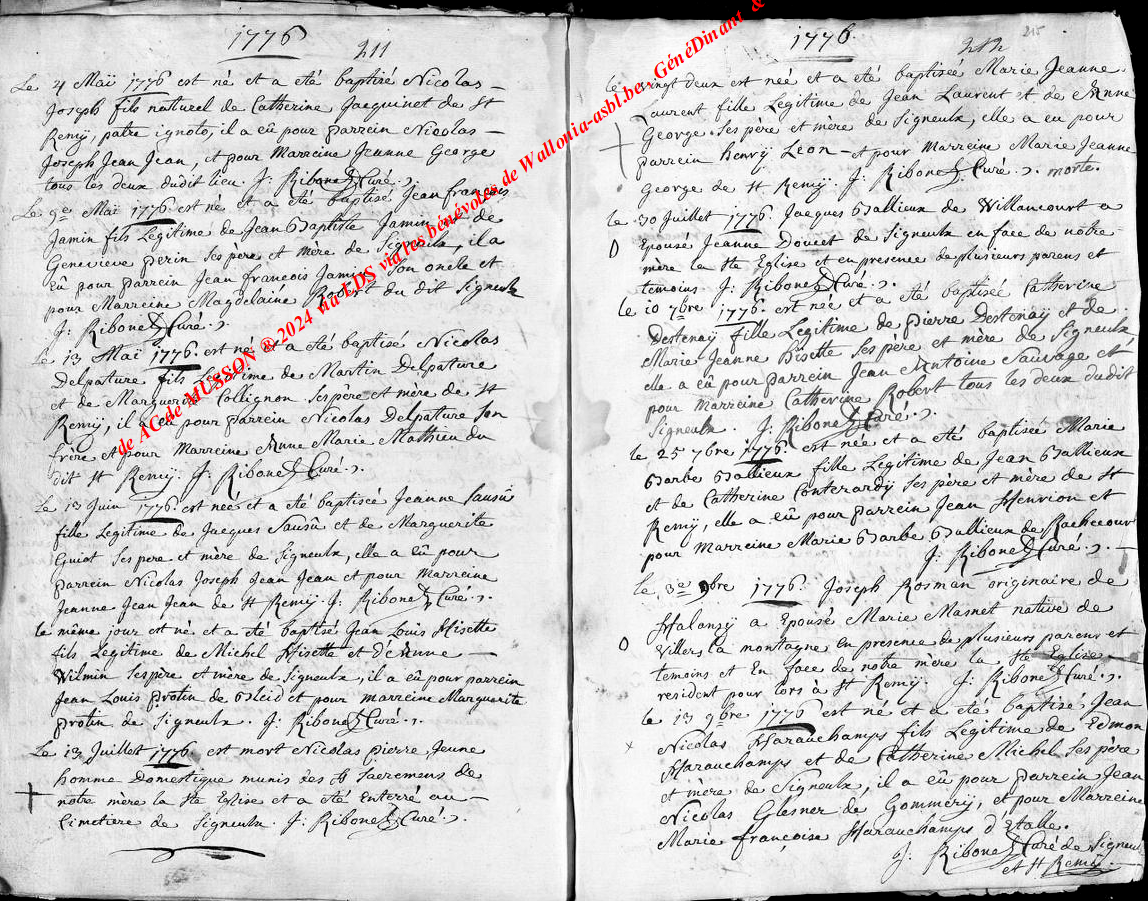 1776
211
Le 4 Maÿ 1776 est né et a eté baptisé Nicolas
Joseph fils naturel de Catherine Jacquinet de St
Remÿ, patre ignoto, il a eû pour parrein Nicolas
Joseph Jean Jean, et pour Marreine Jeanne George
tous les deux dudit lieu J: Ribone Curé.
Le 9e Maÿ 1776 est né et a eté baptisé Jean francois
Jamin fils Legitime de Jean Baptiste Jamin et de
Genevieve perin ses père et mère de Signeulx, il a
Eû pour parrein Jean francois Jamin son oncle et
pour Marreine Magdelaine Robert du dit Signeulx
J: Ribone Curé.
Le 13 Mai 1776 est né et a eté baptisé Nicolas
Delpature fils Legitime de Martin Delpature
et de Marguerite Collignon ses père et mère de St
Remÿ, il a eû pour parrein Nicolas Delpature son
frère et pour Marreine Anne Marie Mathieu du
dit St Remÿ. J: Ribone Curé.
Le 13 Juin 1776 est née et a eté baptisée Jeanne Sausû
fille Legitime de Jacques Sausû et de Marguerite
Guiot ses pere et mère de Signeulx, elle a eû pour
parrein Nicolas Joseph Jean Jean et pour Marreine
Jeanne Jean Jean de St Remÿ. J: Ribone Curé.
le même jour est né et a eté baptisé Jean Louis Hisette
fils Legitime de Michel Hisette et d'Anne
Wilmin ses père et mère de Signeulx, il a eû pour parrein
Jean Louis protin de Bleid et pour marreine Marguerite
protin de Signeulx. J: Ribone Curé.
Le 13 Juillet 1776 est mort Nicolas pierre Jeune
homme Domestique munis des St Sacremens de
notre mère la Ste Eglise et a eté Enterré au
Cimetiere de Signeulx. J: Ribone Curé.
1776
212
215
le vingt deux est née et a eté baptisée Marie Jeanne
Laurent fille Legitime de Jean Laurent et de Anne
George ses père et mère de Signeulx, elle a eu pour
parrein henrÿ Leon et pour Marreine Marie Jeanne
George de St Remÿ. J: Ribone Curé. morte.
le 30 Juillet 1776 Jacques Hallieux de Villancourt a
Epousé Jeanne Doucet de Signeulx en face de notre
mère la Ste Eglise et en presence de plusieurs parens et
temoins J: Ribone Curé.
le 10 7bre 1776 est née et a eté baptisée Catherine
Destenaÿ fille Legitime de pierre Destenaÿ et de
Marie Jeanne Hisette ses père et mère de Signeulx
elle a eû pour parrein Jean Antoine Sauvage et
pour marreine Catherine Robert tous les deux dudit
Signeulx. J: Ribone Curé.
le 25 7bre 1776 est née et a eté baptisée Marie
Barbe Hallieux fille Legitime de Jean Hallieux
et de Catherine Conterardÿ ses père et mère de St
Remÿ, elle a eû pour parrein Jean Henrion et
pour Marreine Marie Barbe Hallieux de Rachecourt
J: Ribone Curé.
le 3e 9bre 1776 Joseph Rosman originaire de
Halanzÿ a Epousé Marie Masnet native de
Villers la montagne en presence de plusieurs parens et
temoins et En face de notre mère la Ste Eglise
resident pour lors à St Remÿ. J: Ribone Curé.
le 13 9bre 1776 est né et a eté baptisé Jean
Nicolas Harauchamps fils Legitime de Edmon
Harauchamps et de Catherine Michel ses père
et mère de Signeulx, il a eû pour parrein Jean
Nicolas Glesner de Gommerÿ, et pour Marreine
Marie françoise Harauchamps d'Etalle.
J: Ribone Curé de Signeulx
et St Remÿ
de AC de MUSSON ®2024 via LDS via les bénévoles de Wallonia-asbl.be - GénéDinant &